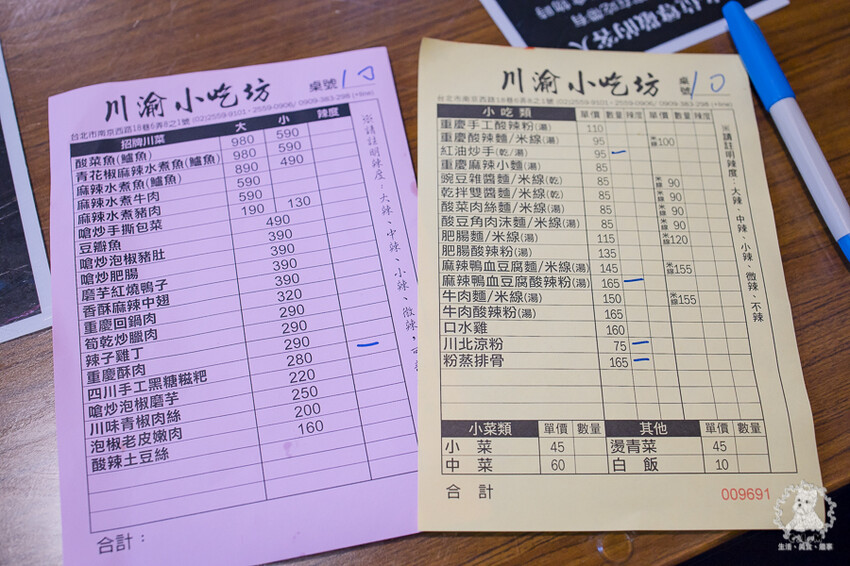 川渝小吃坊 桌號 10
台北市南京西路18巷6弄8之1號 (02)2559-9101・2559-0906/ 0909-383-298
招牌川菜 大 小 辣度
酸菜魚(鱸魚) 980 590
青花椒麻辣水煮魚(鱸魚) 980 590
麻辣水煮魚(鱸魚) 890 490
麻辣水煮牛肉 590
麻辣水煮豬肉 590
嗆炒手撕包菜 190 130
豆瓣魚 490
嗆炒泡椒豬肚 390
嗆炒肥腸 390
磨芋紅燒鴨子 390
香酥麻辣中翅 390
重慶回鍋肉 320
筍乾炒臘肉 290
辣子雞丁 290
重慶酥肉 290
四川手工黑糖糍粑 280
嗆炒泡椒磨芋 220
川味青椒肉絲 250
泡椒老皮嫩肉 200
酸辣土豆絲 160
合計：
※請註明辣度：大辣、中辣、小辣、微辣、
川渝小吃坊 桌號 10
台北市南京西路18巷6弄8之1號 (02)2559-9101・2559-0906/ 0909-383-298
小吃類 單價 數量 辣度 單價 數量 辣度
重慶手工酸辣粉(湯) 110
重慶酸辣麵/米線(湯) 95 米線100
紅油炒手(乾/湯) 95
重慶麻辣小麵(湯) 85
豌豆雜醬麵/米線(乾) 85 米線 90
乾拌雙醬麵/米線(乾) 85 米線 90
酸菜肉絲麵/米線(湯) 85 米線 90
酸豆角肉沫麵/米線(湯) 85 米線 90
肥腸麵/米線(湯) 115 米線120
肥腸酸辣粉(湯) 135
麻辣鴨血豆腐麵/米線(湯) 145 米線155
麻辣鴨血豆腐酸辣粉(湯) 165
牛肉麵/米線(湯) 150 米線155
牛肉酸辣粉(湯) 165
口水雞 160
川北涼粉 75
粉蒸排骨 165
小菜類 單價 數量 其他 單價 數量
小菜 45 燙青菜 45
中菜 60 白飯 10
合計 009691
※請註明辣度：大辣、中辣、小辣、微辣、不辣
生活、美食、趣事